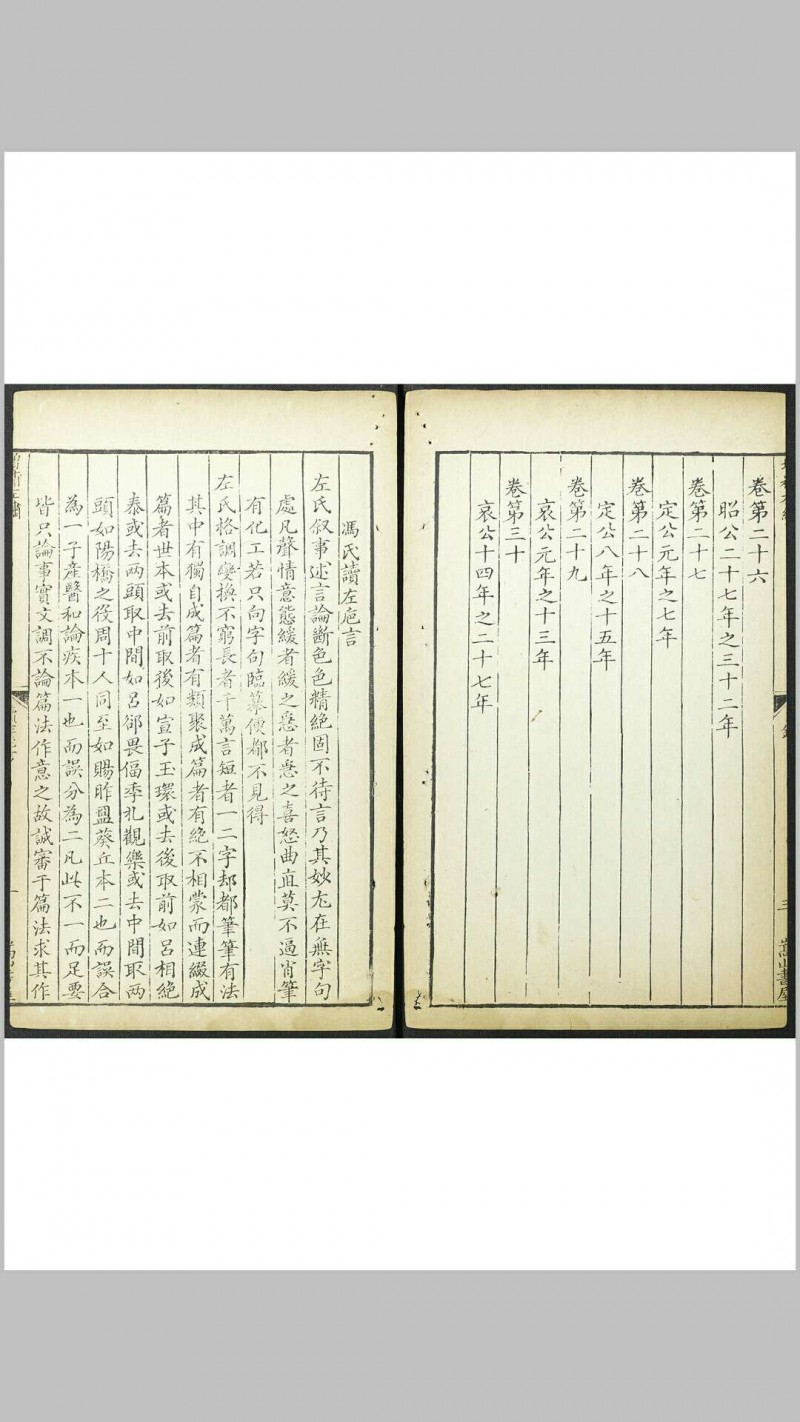 卷第二十六
昭公二十七年之三十二年
卷第二十七
定公元年之七年
卷第二十八
定公八年之十五年
卷第二十九
哀公元年之十三年
卷第三十
哀公十四年之二十七年
三
嵩山書屋
馮氏讀左巵言
左氏叙事述言論斷色色精絶固不待言乃其妙尤在無字句
處凡聲情意態緩者緩之急者急之喜怒曲直莫不逼肖筆
有化工若只向字句臨摹便都不見得
左氏格調變換不窮長者千萬言短者一二字却都筆筆有法
其中有獨自成篇者有類聚成篇者有絶不相蒙而連綴成
篇者世本或去前取後如宣子玉環或去後取前如呂相絶
秦或去两頭取中間如呂郤畏偪季札觀樂或去中間取两
頭如陽橋之役周十人同至如賜胙盟葵丘本二也而誤合
為一子產醫和論疾本一也而誤分為二凡此不一而足要
皆只論事實文調不論篇法作意之故誠審于篇法求其作
一